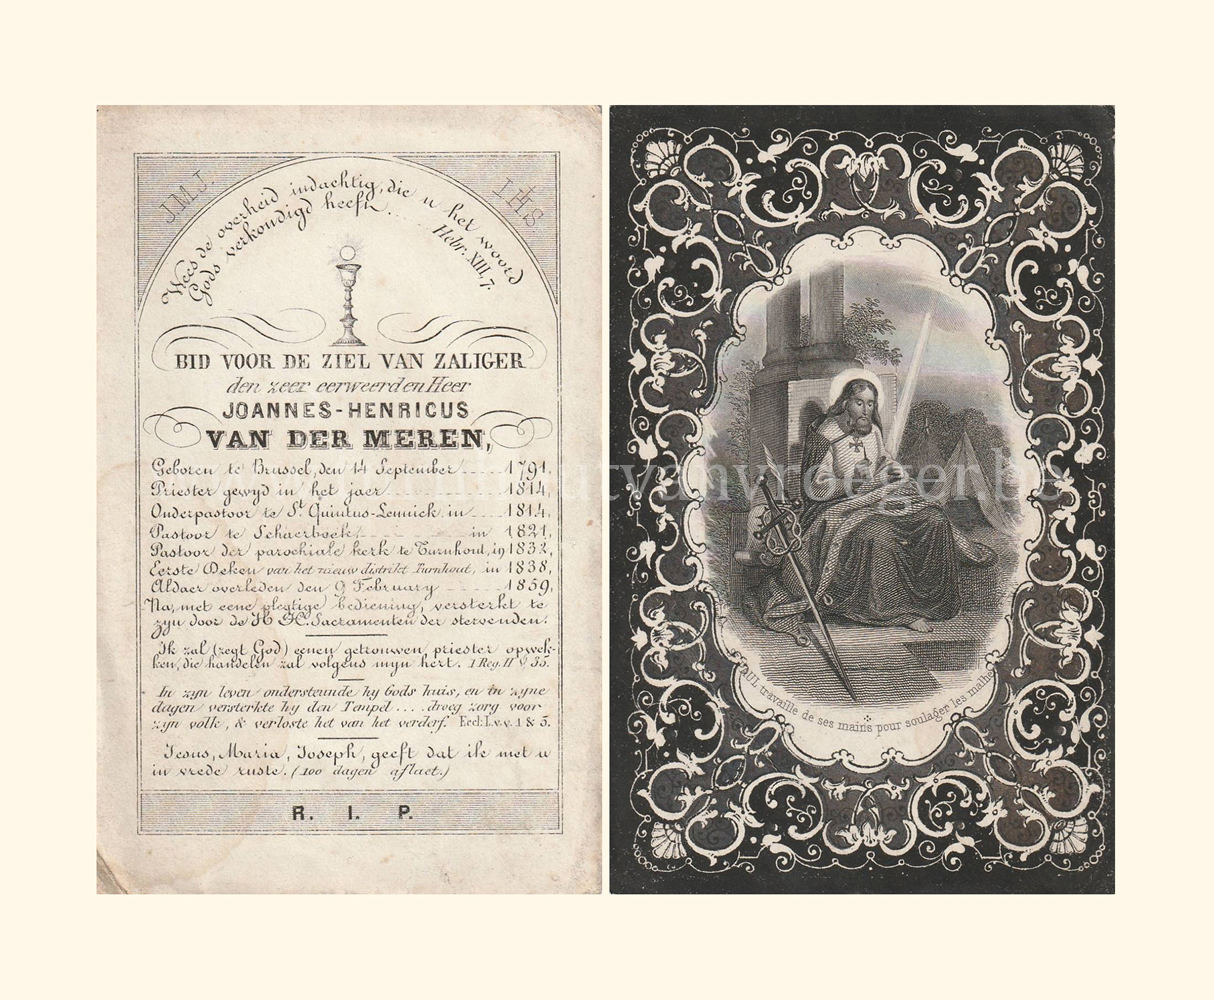 J.M.J.
I.H.S.
Wees de overheid indachtig, die u het woord
Gods verkondigd heeft....
Hebr. XIII, 7.
BID VOOR DE ZIEL VAN ZALIGER
den zeer eerweerden Heer
JOANNES-HENRICUS
VAN DER MEREN,
Geboren te Brussel, den 14 September ..... 1791,
Priester gewyd in het jaer ..... 1814,
Onderpastoor te St. Quintus-Lennick in .... 1814,
Pastoor te Schaerbeek, ..... in 1821,
Pastoor der parochiale kerk te Turnhout, in 1832,
Eerste Deken van het nieuw distrikt Turnhout, in 1838,
Aldaer overleden den 9 February ..... 1859,
Na, met eene plegtige bediening, versterkt te
zyn door de H.H. Sacramenten der stervenden.
Ik zal (zegt God) eenen getrouwen priester opwek-
ken, die handelen zal volgens mijn hert. 1 Reg. II V 35.
In zyn leven ondersteunde hy Gods huis, en in zyne
dagen versterkte hy den Tempel .... droeg zorg voor
zyn volk, & verloste het van het verderf. Eccl: L.v.v. 1 & 3.
Jesus, Maria, Joseph, geeft dat ik met u
in vrede ruste. (100 dagen aflaet.)
R. I. P.
travaille de ses mains pour soulager les
uitvanvroeger.be